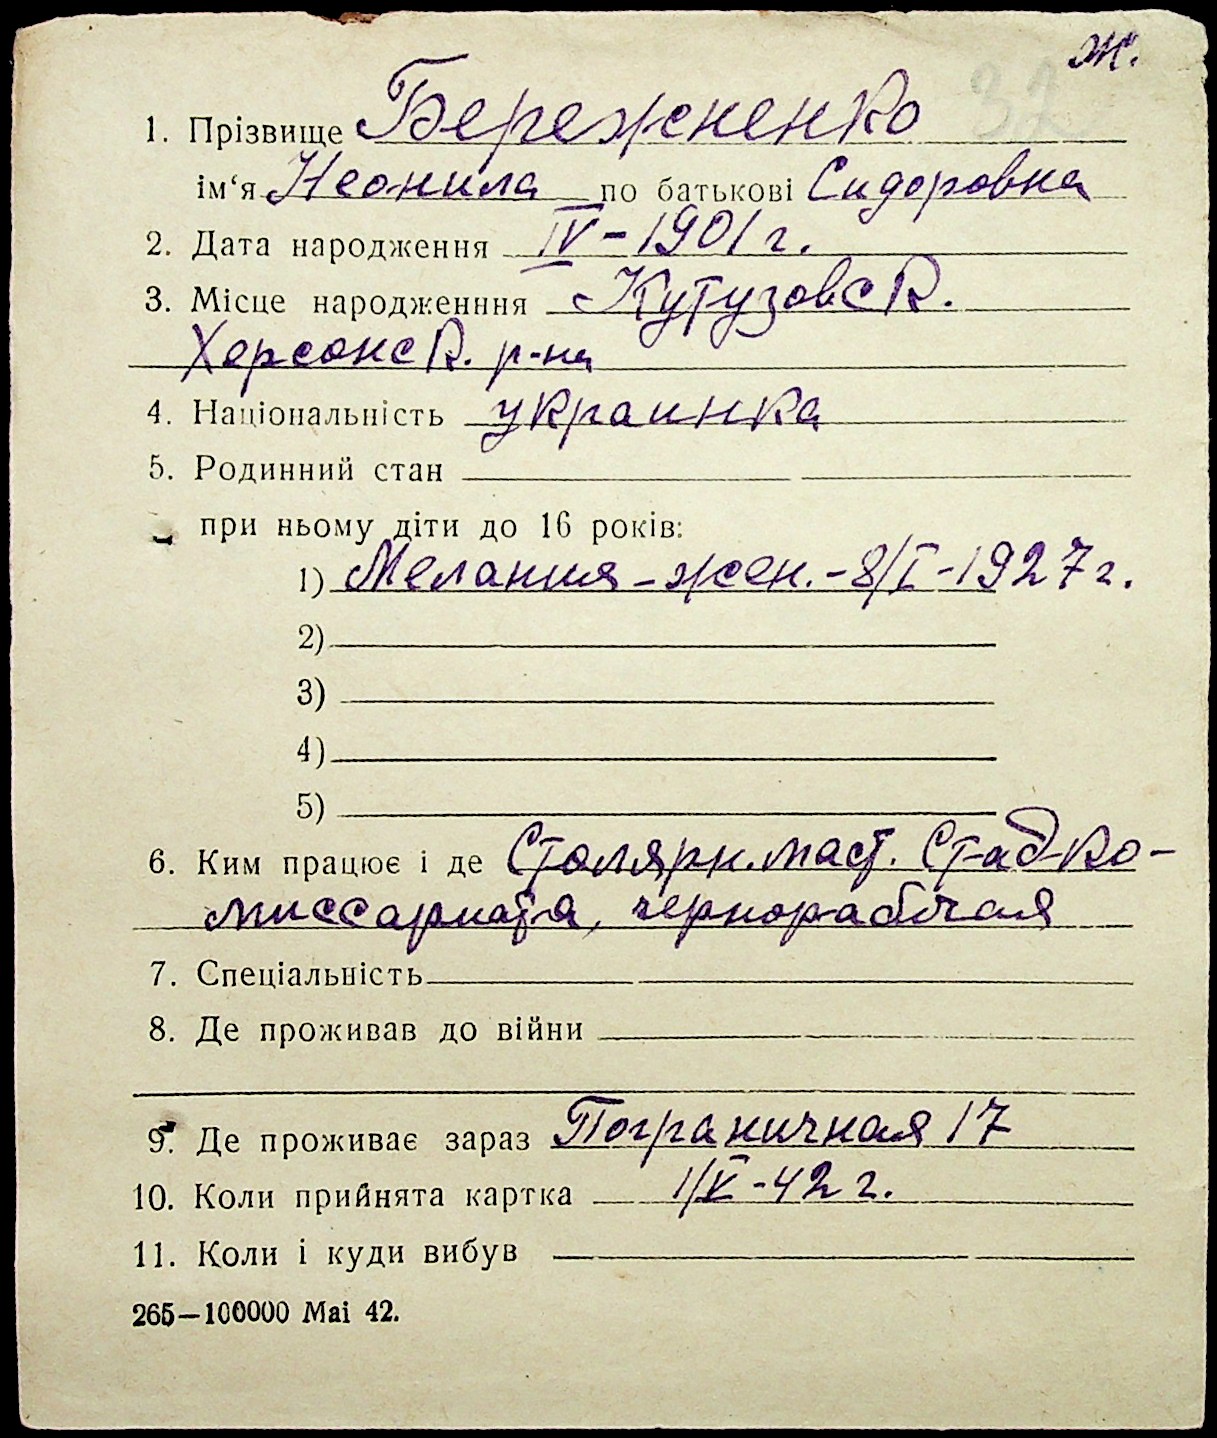 ж.
32
1. Прізвище Бережненко
ім‘я Неонила по батькові Сидоровна
2. Дата народження IV-1901г.
3. Місце народженння Кутузовск.
Херсонск. р-на
4. Національність украинка
5. Родинний стан
при ньому діти до 16 років:
1) Мелания-жен.-8/I-1927г.
2)
3)
4)
5)
6. Ким працює і де Столярн.маст. Стадко-
миссариата, чернорабочая
7. Спеціальність
8. Де проживав до війни
9. Де проживає зараз Пограничная 17
10. Коли прийнята картка 1/V-42г.
11. Коли і куди вибув
265—100000 Mai 42.